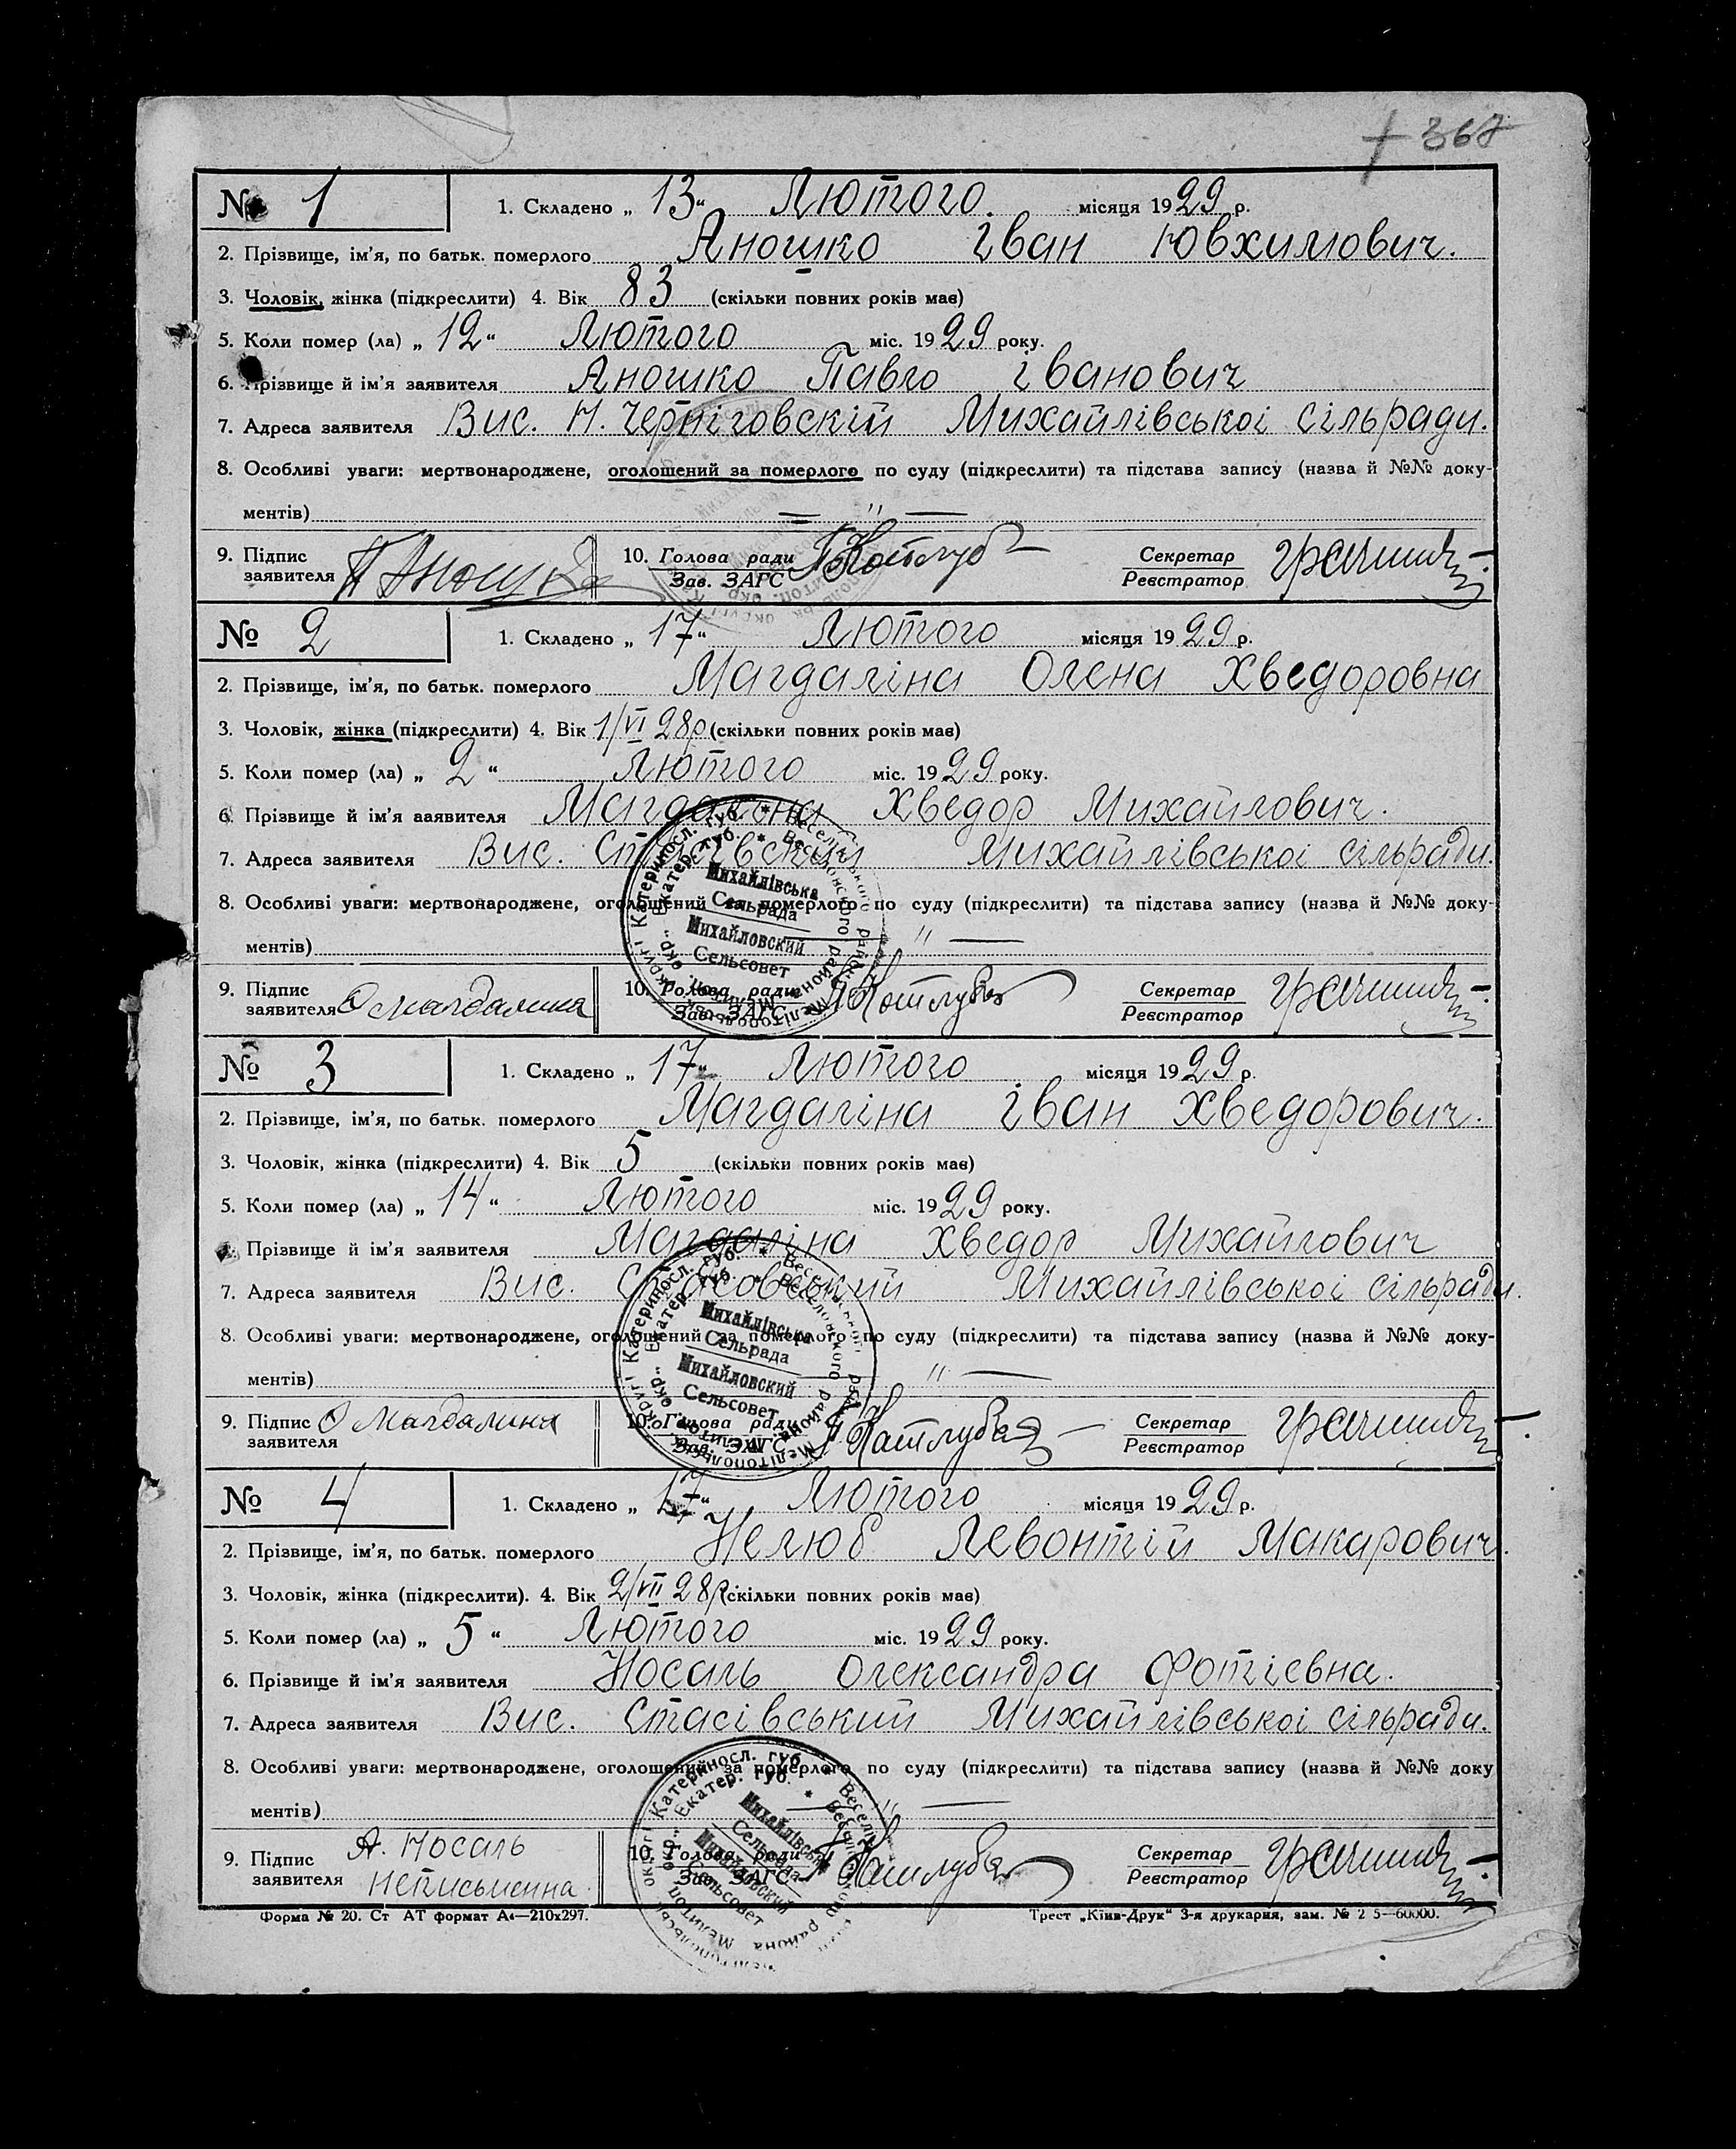 367
№ 1 1. Складено „ 13 “ Лютого. місяця 1929 р.
2. Прізвище, ім'я, по батьк. померлого Аношко Іван Ювхимович.
3. Чоловік, жінка (підкреслити) 4. Вік 83 (скільки повних років має)
5. Коли помер (ла) „ 12 “ Лютого міс. 1929 року.
6. Прізвище й ім'я заявителя Аношко Павло Іванович
7. Адреса заявителя Вис. Н. Черніговскій Михайлівськоі сільради.
8. Особливі уваги: мертвонароджене, оголошений за померлого по суду (підкреслити) та підстава запису (назва й №№ доку-
ментів) — „ —
9. Підпис заявителя П Аношко 10. Голова ради Зав. ЗАГС Секретар Реєстратор
№ 2 1. Складено „ 17 “ Лютого місяця 1929 р.
2. Прізвище, ім'я, по батьк. померлого Магдаліна Олена Хведоровна
3. Чоловік, жінка (підкреслити) 4. Вік 1/VI 28р (скільки повних років має)
5. Коли помер (ла) „ 2 “ Лютого міс. 1929 року.
6. Прізвище й ім'я ааявителя Магдаліна Хведор Михайлович.
7. Адреса заявителя Вис. Михайлівськоі сільради.
8. Особливі уваги: мертвонароджене, оголошений за померлого по суду (підкреслити) та підстава запису (назва й №№ доку-
ментів) — „ —
9. Підпис заявителя Магдалина 10. Голова ради Зав. ЗАГС Секретар Реєстратор
Катериносл. губ. * Веселівського району
Екатер. губ. * Веселовского района
Михайлівська
Сельрада
Михайловский
Сельсовет
№ 3 1. Складено „ 17 “ Лютого місяця 1929 р.
2. Прізвище, ім'я, по батьк. померлого Магдаліна Іван Хведорович.
3. Чоловік, жінка (підкреслити) 4. Вік 5 (скільки повних років має)
5. Коли помер (ла) „ 14 “ Лютого міс. 1929 року.
Прізвище й ім'я заявителя Магдаліна Хведор Михайлович
7. Адреса заявителя Вис. Михайлівськоі сільради.
8. Особливі уваги: мертвонароджене, оголошений за померлого по суду (підкреслити) та підстава запису (назва й №№ доку-
ментів) „ —
9. Підпис заявителя Магдалина 10. Голова ради Зав. ЗАГС Секретар Реєстратор
Михайлівська
Сельрада
Михайловский
Сельсовет
№ 4 1. Складено „ 17 “ Лютого місяця 1929 р.
2. Прізвище, ім'я, по батьк. померлого Нелюб Левонтій Макарович.
3. Чоловік, жінка (підкреслити). 4. Вік 2/VII 28р (скільки повних років має)
5. Коли помер (ла) „ 5 “ Лютого міс. 1929 року.
6. Прізвище й ім'я заявителя Носаль Олександра Фотієвна.
7. Адреса заявителя Вис. Стасівський Михайлівськоі сільради.
8. Особливі уваги: мертвонароджене, оголошений за померлого по суду (підкреслити) та підстава запису (назва й №№ доку
ментів) — „ —
9. Підпис заявителя А. Носаль неписьменна 10. Голова ради Зав. ЗАГС Секретар Реєстратор
Михайлівська
Сельрада
Михайловский
Сельсовет
Форма № 20. Ст АТ формат А4—210x297. Трест „Київ-Друк“ 3-я друкарня, зам. № 2 5—60000.